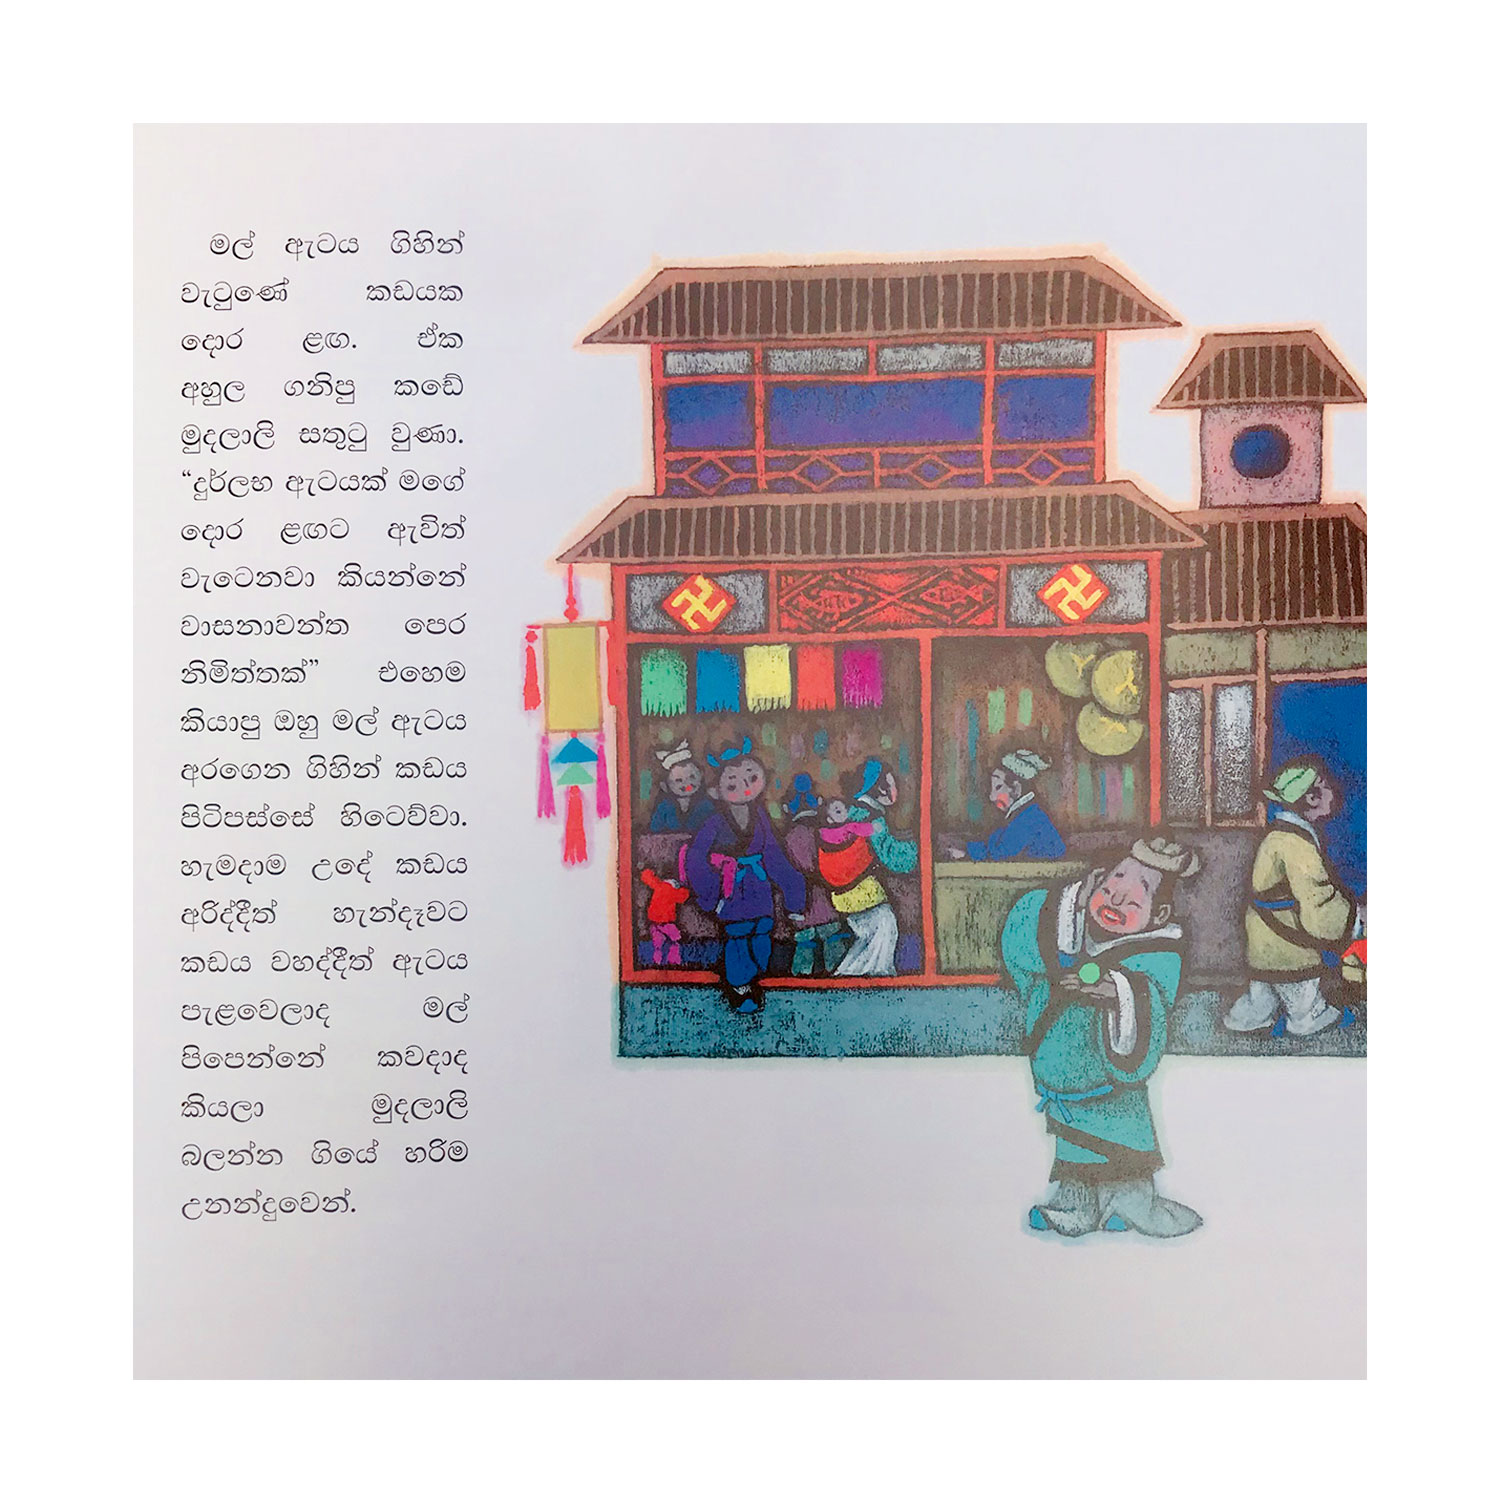 මල් ඇටය ගිහින්
වැටුණේ කඩයක
දොර ළඟ. ඒක
අහුල ගනිපු කඩේ
මුදලාලි සතුටු වුණා.
“දුර්ලභ ඇටයක් මගේ
දොර ළඟට ඇවිත්
වැටෙනවා කියන්නේ
වාසනාවන්ත පෙර
නිමිත්තක්” එහෙම
කියාපු ඔහු මල් ඇටය
අරගෙන ගිහින් කඩය
පිටිපස්සේ හිටෙව්වා.
හැමදාම උදේ කඩය
අරිද්දීත් හැන්දෑවට
කඩය වහද්දීත් ඇටය
පැළවෙලාද මල්
පිපෙන්නේ කවදාද
කියලා මුදලාලි
බලන්න ගියේ හරිම
උනන්දුවෙන්.